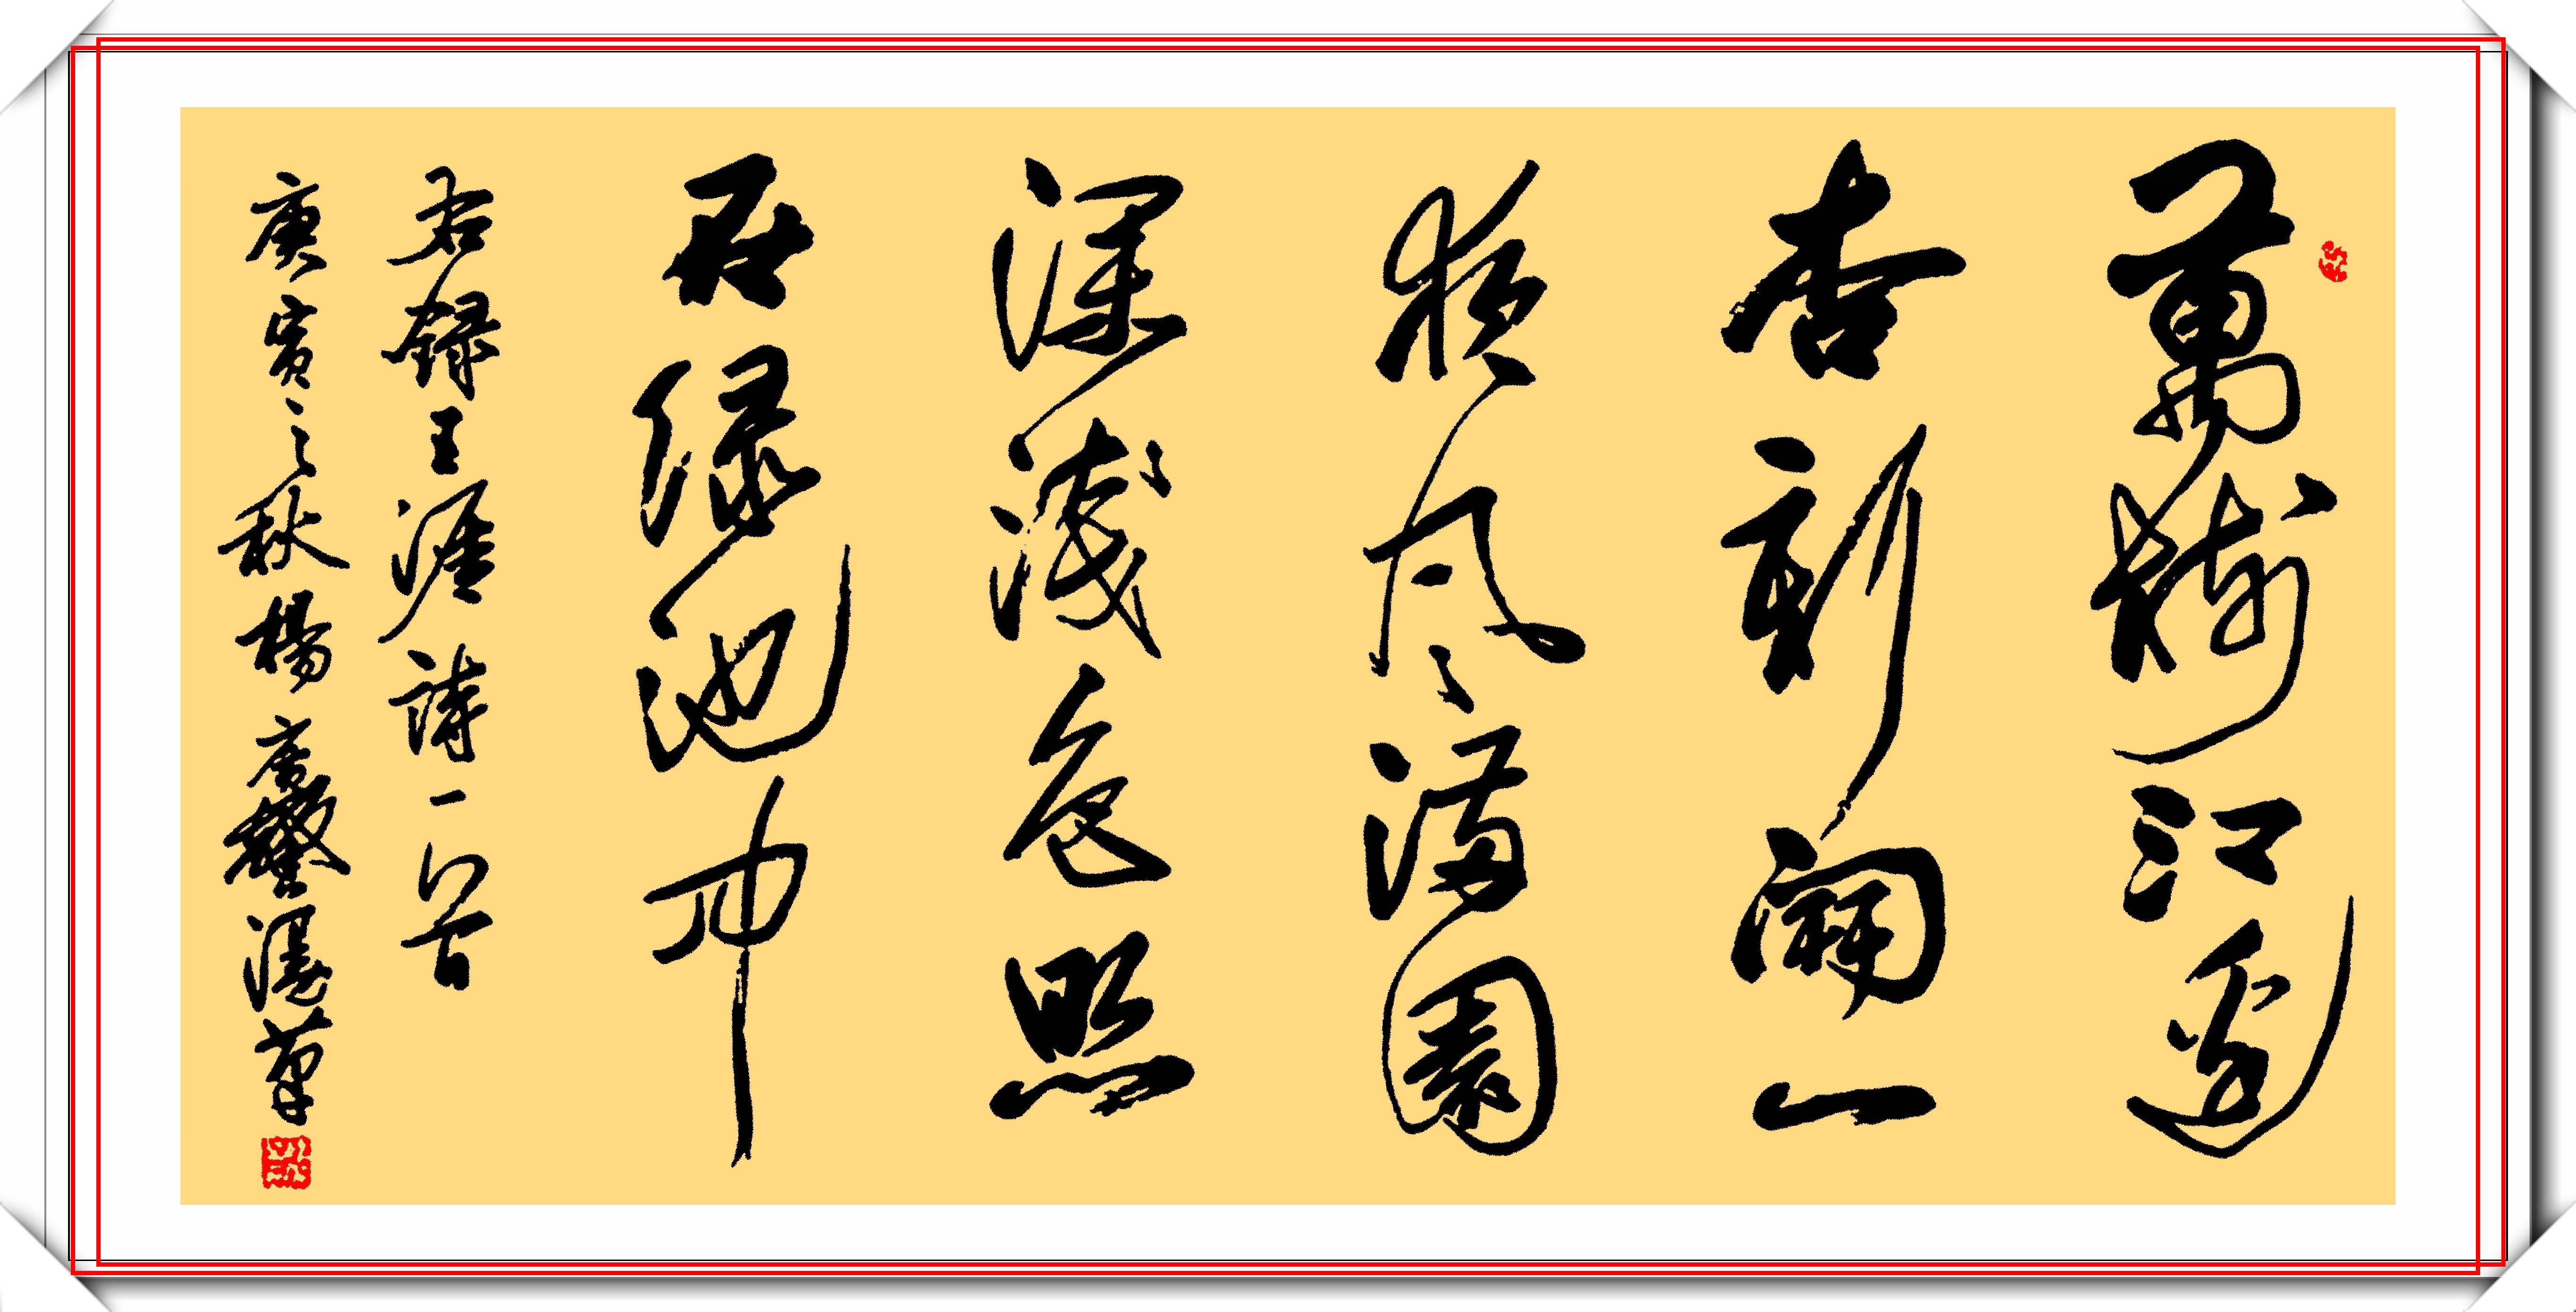 萬樹江邊
杏新開一
夜風滿園
深淺色照
在綠池中
右錄王涯詩一首
庚寅之秋楊廣馨漫草